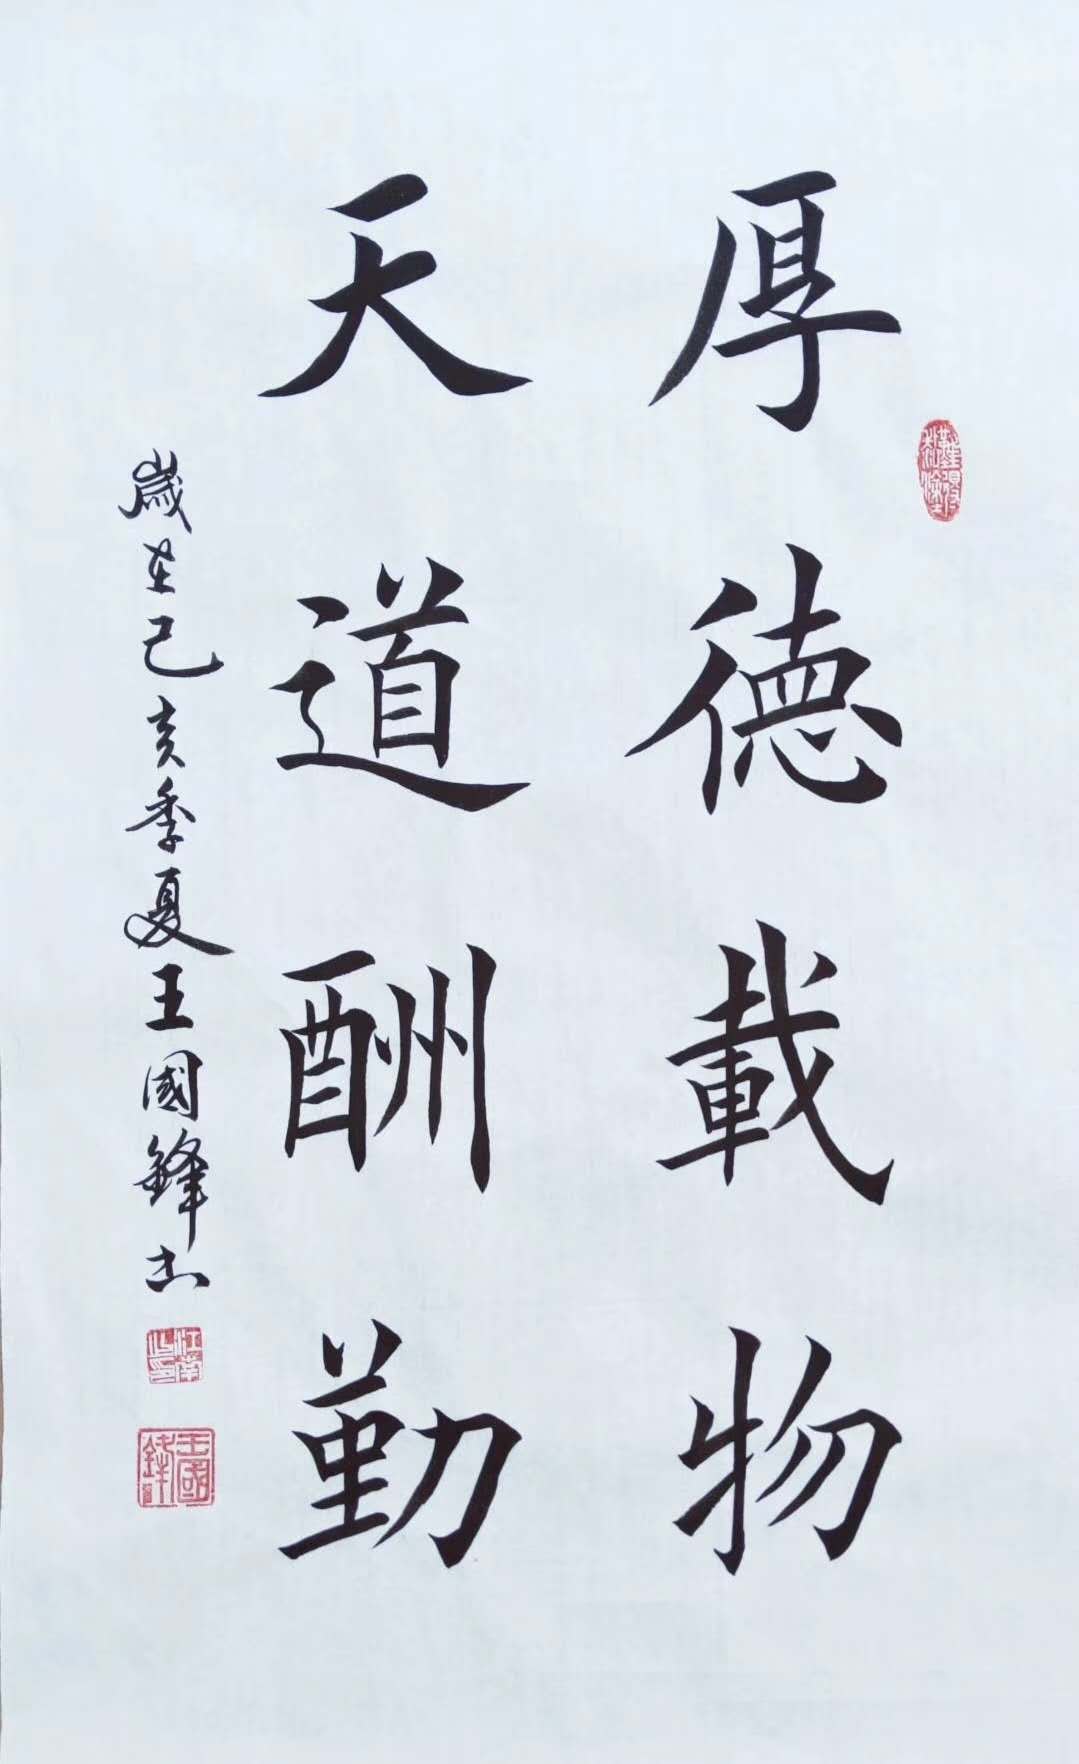 厚德載物
天道酬勤
歲在己亥季夏王國鋒書
江南
王國鋒